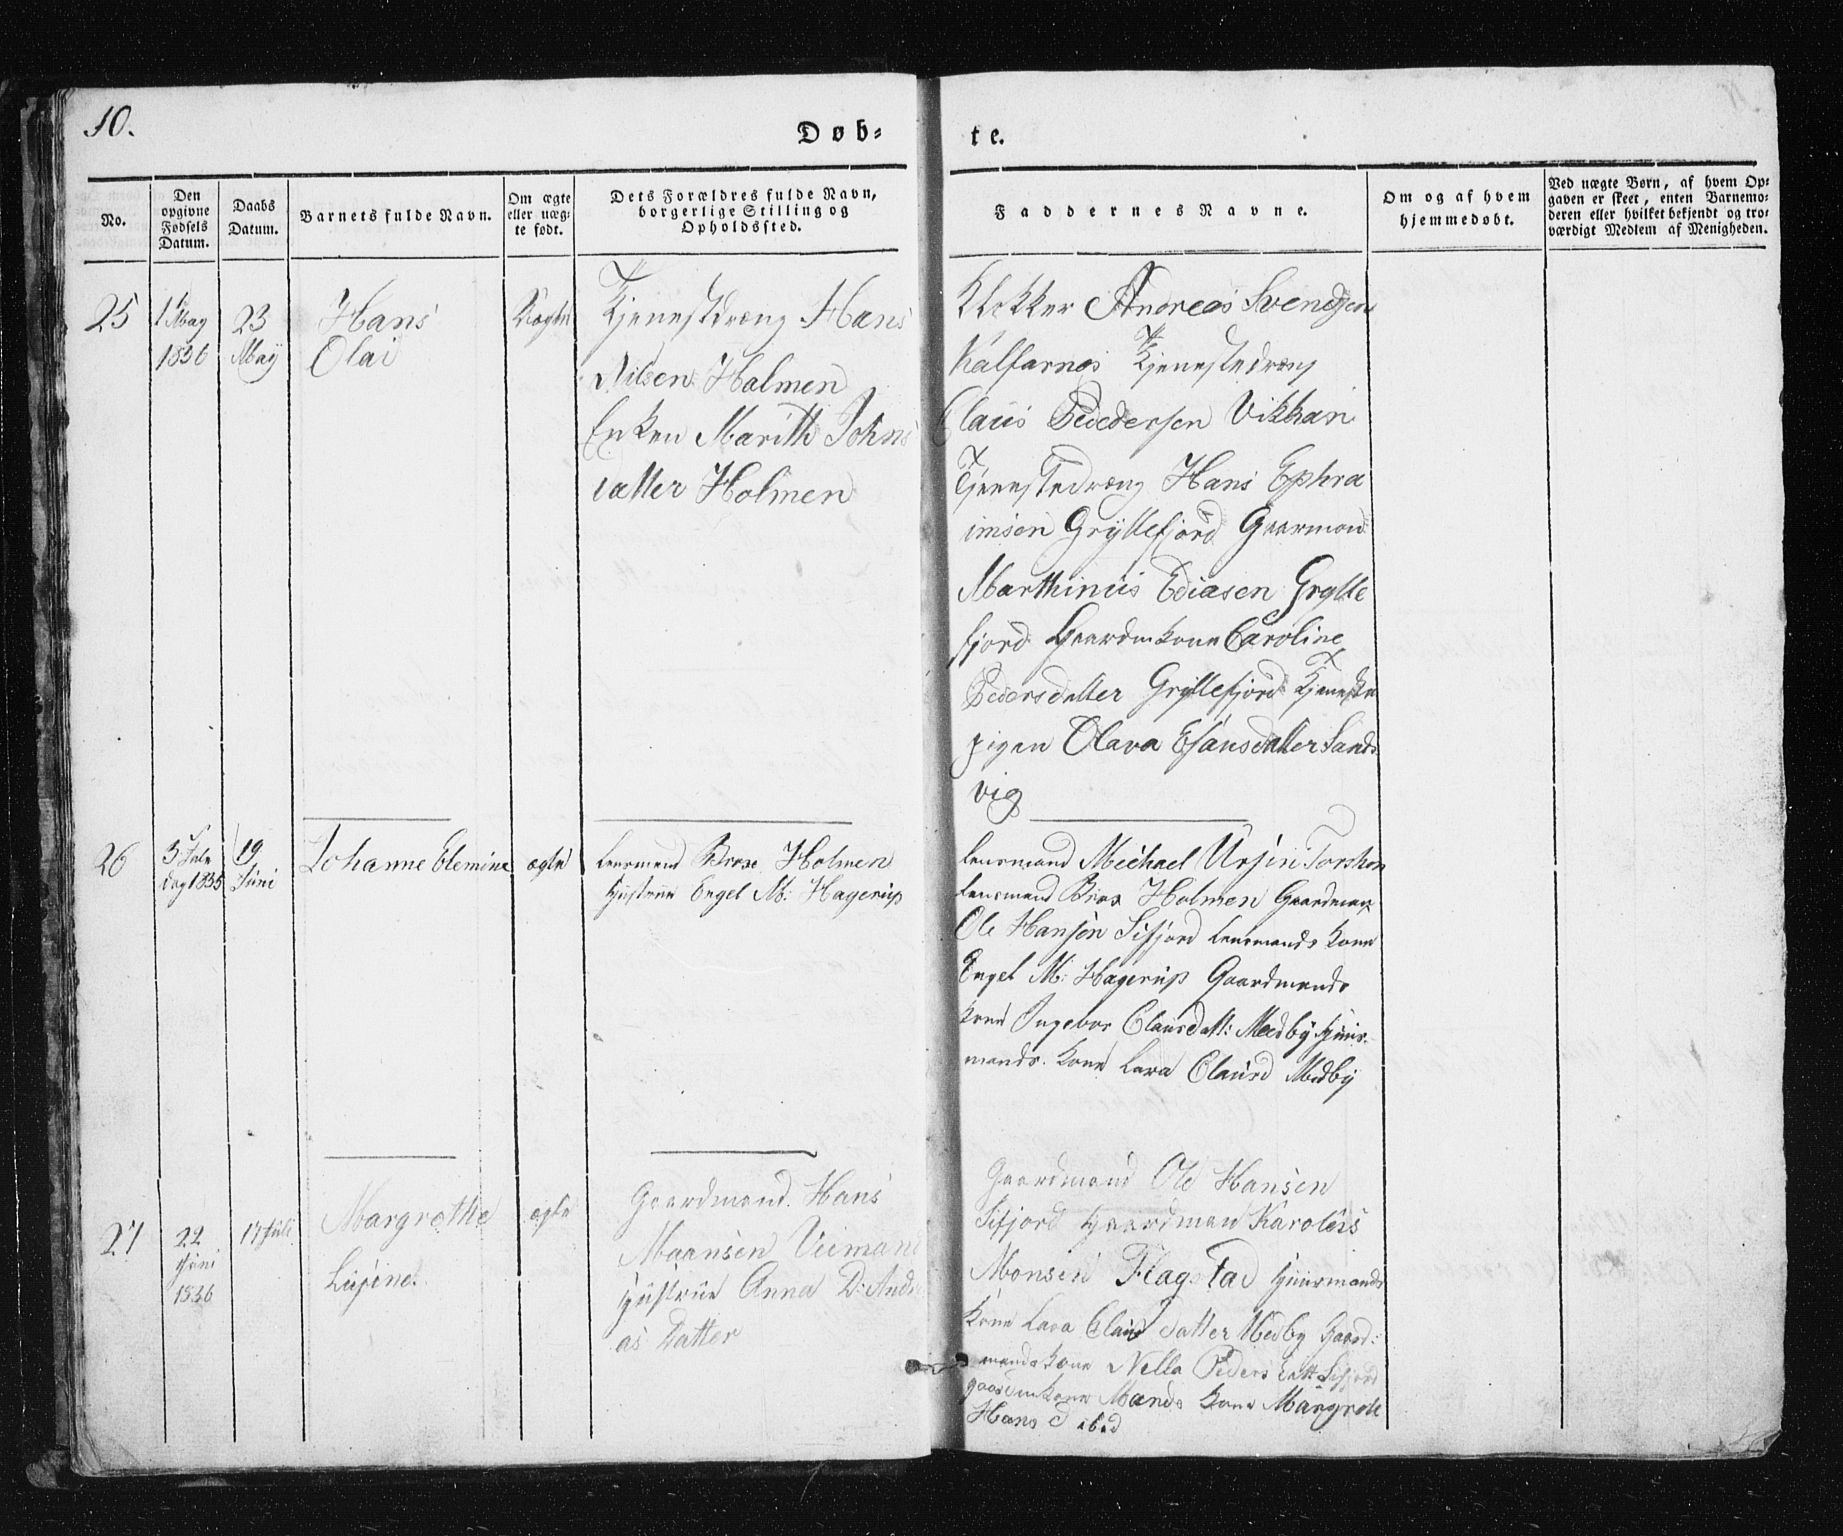 10.
Døb-
te.
No.
Den
opgivne
Fødsels
Datum.
Daabs
Datum.
Barnets fulde Navn.
Om ægte
eller uæg-
te født.
Dets Forældres fulde Navn,
borgerlige Stilling og
Opholdssted.
Faddernes Navne.
Om og af hvem
hjemmedøbt.
Ved uægte Børn, af hvem Op-
gaven er skeet, enten Barnemo-
deren eller hvilket bekjendt og tro-
værdigt Medlem af Menigheden.
25
1 May
1836
23
May
Hans
Olai
Uægte
Tjenestdreng Hans
Nilsen Holmen
Enken Marith Johns
datter Holmen
Klokker Andreas Svendsen
Kalfarnes Tjenestedreng
Claus Pededersen Vikhan
Tjenestedreng Hans Ephra
imsen Gryllefjord Gaarmand
Marthinus Ediasen Grylle
fjord Gaardmkone Caroline
Pedersdatter Gryllefjord Tjeneste
pigen Olava Hansdatter Sands
vig
26
3 Jule
dag 1835
19
Juni
Johanne Elemine
ægte
Lensmand Brox Holmen
Hustrue Engel M: Hagerup
Lensmand Michael Ursin Torshen
Lensmand Brox Holmen Gaardmand
Ole Hansen Sifjord Lensmands Kone
Engel M: Hagerup Gaardmands
kone Ingebor Clausdatt: Medby Huus-
mands Kone Lava Clausd Medby
27
22
Juni
1836
17 Juli
Margrethe
Lusine
ægte
Gaardmand Hans
Maansen Veimand
Hustrue Anna D: Andre
as Datter
Gaardmand Ole Hansen
Sifjord Gaardman Karolus
Monsen Flagstad Huusmands
Kone Lava Claus datter Medby Gaard-
mands kone Nella Peders datt Sifjord
gaardmkone Mands Kone Margrete
Hans d ibid